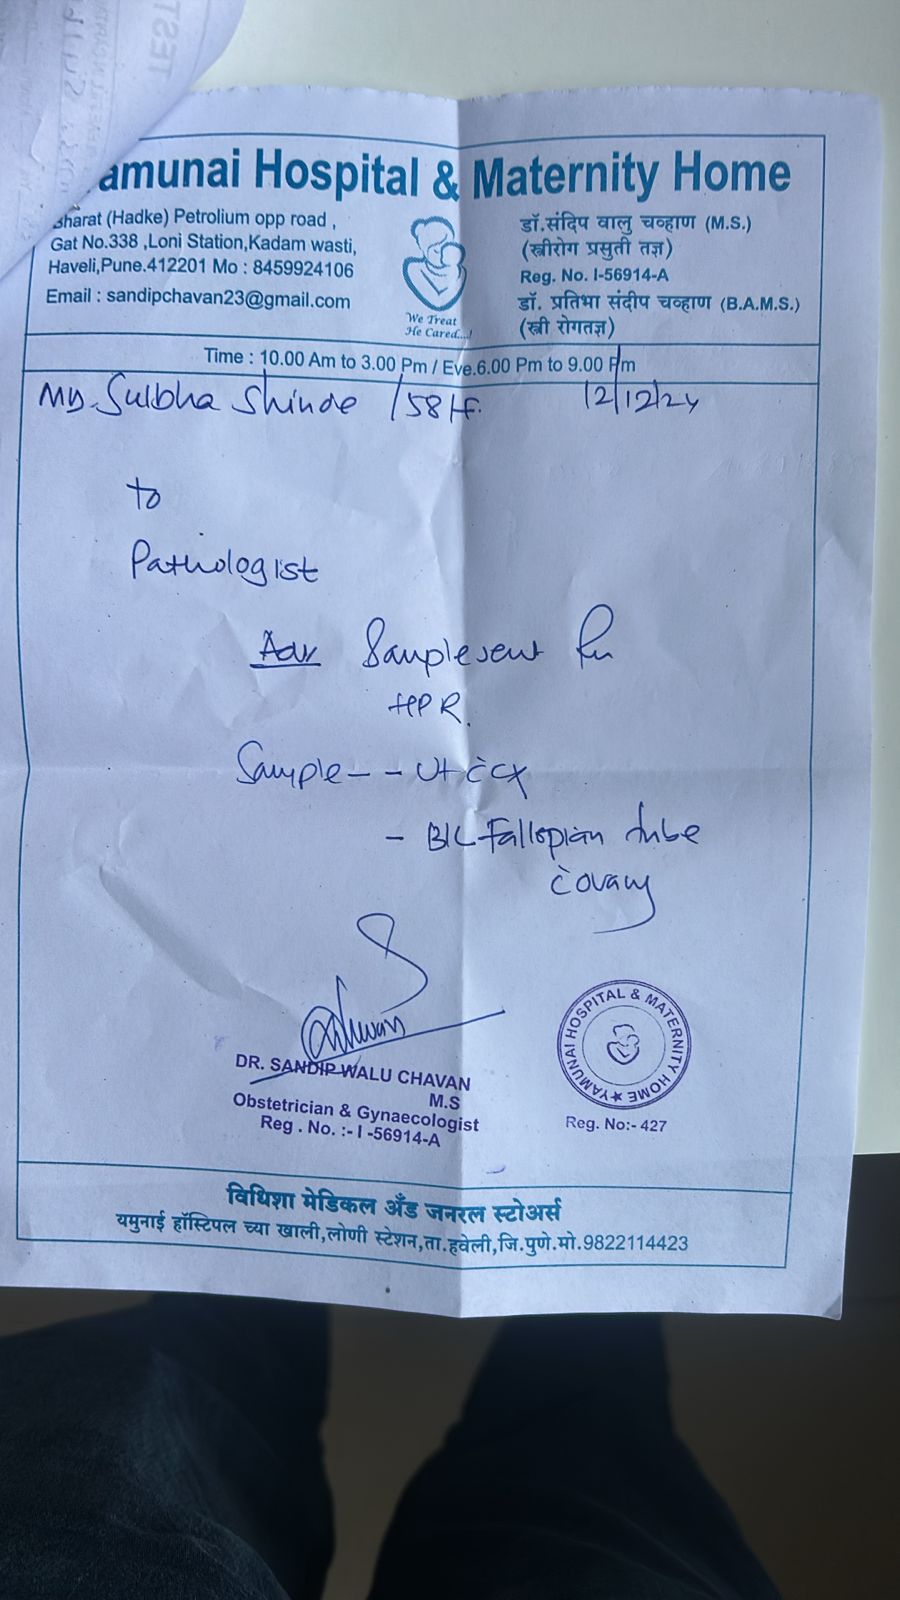 amunai Hospital & Maternity Home
Bharat (Hadke) Petrolium opp road ,
Gat No.338 ,Loni Station,Kadam wasti,
Haveli,Pune.412201 Mo : 8459924106
Email : sandipchavan23@gmail.com
We Treat
He Cared....!
डॉ.संदिप वालु चव्हाण (M.S.)
(स्त्रीरोग प्रसुती तज्ञ)
Reg. No. I-56914-A
डॉ. प्रतिभा संदीप चव्हाण (B.A.M.S.)
(स्त्री रोगतज्ञ)
Time : 10.00 Am to 3.00 Pm / Eve.6.00 Pm to 9.00 Pm
Sulbha Shinde /58/F. 12/12/24
to
Pathologist
Adv Sample sent for
HPR.
Sample - - Ut c̄ Cx
- B/L Fallopian tube
c̄ ovary
DR. SANDIP WALU CHAVAN
M.S
Obstetrician & Gynaecologist
Reg . No. :- I -56914-A
YAMUNAI HOSPITAL & MATERNITY HOME
Reg. No:- 427
विधिशा मेडिकल अँड जनरल स्टोअर्स
यमुनाई हॉस्टिपल च्या खाली,लोणी स्टेशन,ता.हवेली,जि.पुणे.मो.9822114423
TEST